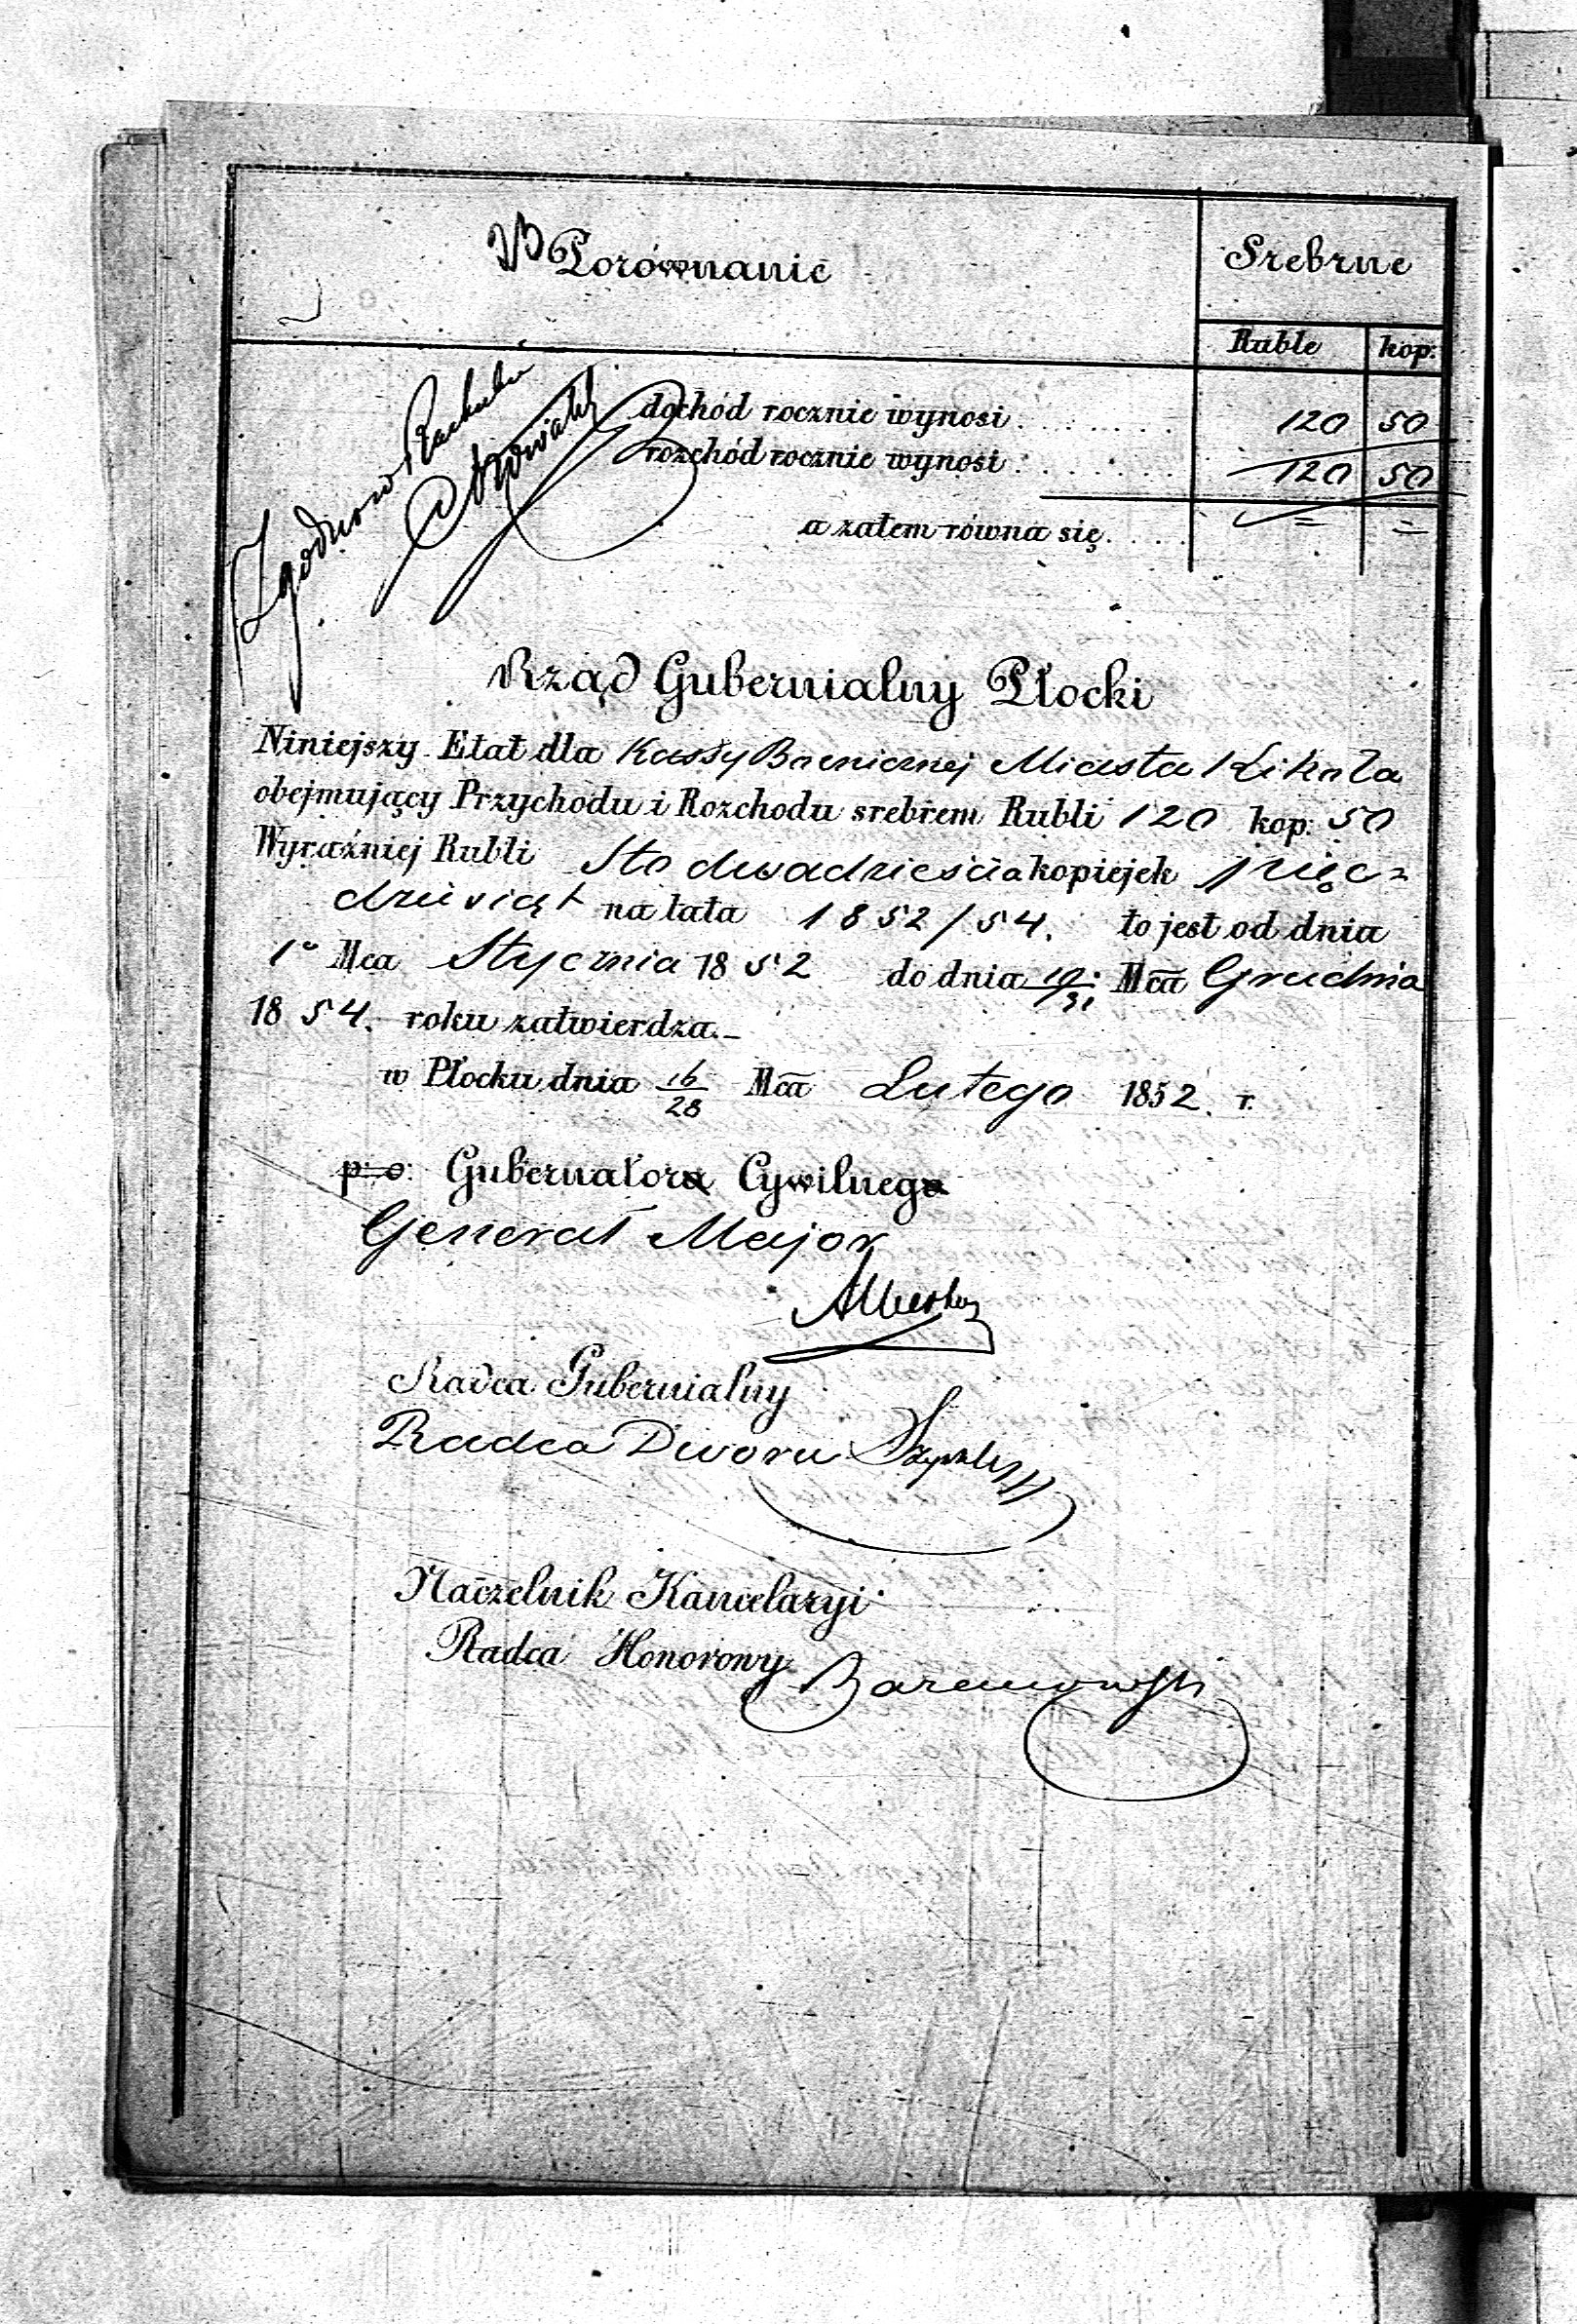 Porównanie
Srebrne
Ruble kop:
Zgodno w Rachubie
dochód rocznie wynosi . . . . . . . 120 50
rozchód rocznie wynosi . . . . . . . 120 50
a zatem równa się. . . . = =
Rząd Gubernialny Płocki
Niniejszy Etat dla Kassy Bóżnicznej Miasta Kikoła
obejmujący Przychodu i Rozchodu srebrem Rubli 120 kop: 50
Wyraźniej Rubli Sto dwadzieścia kopiejek pięć=
dziesiąt na lata 1852/54. to jest od dnia
1º Mca Stycznia 1852 do dnia 19/31 Mca Grudnia
1854. roku zatwierdza.—
w Płocku dnia 16/28 Mca Lutego 1852. r.
p: o: Gubernatora Cywilnego
Generał Major
Radca Gubernialny
Radca Dworu
Naczelnik Kancelaryi
Radca Honorowy